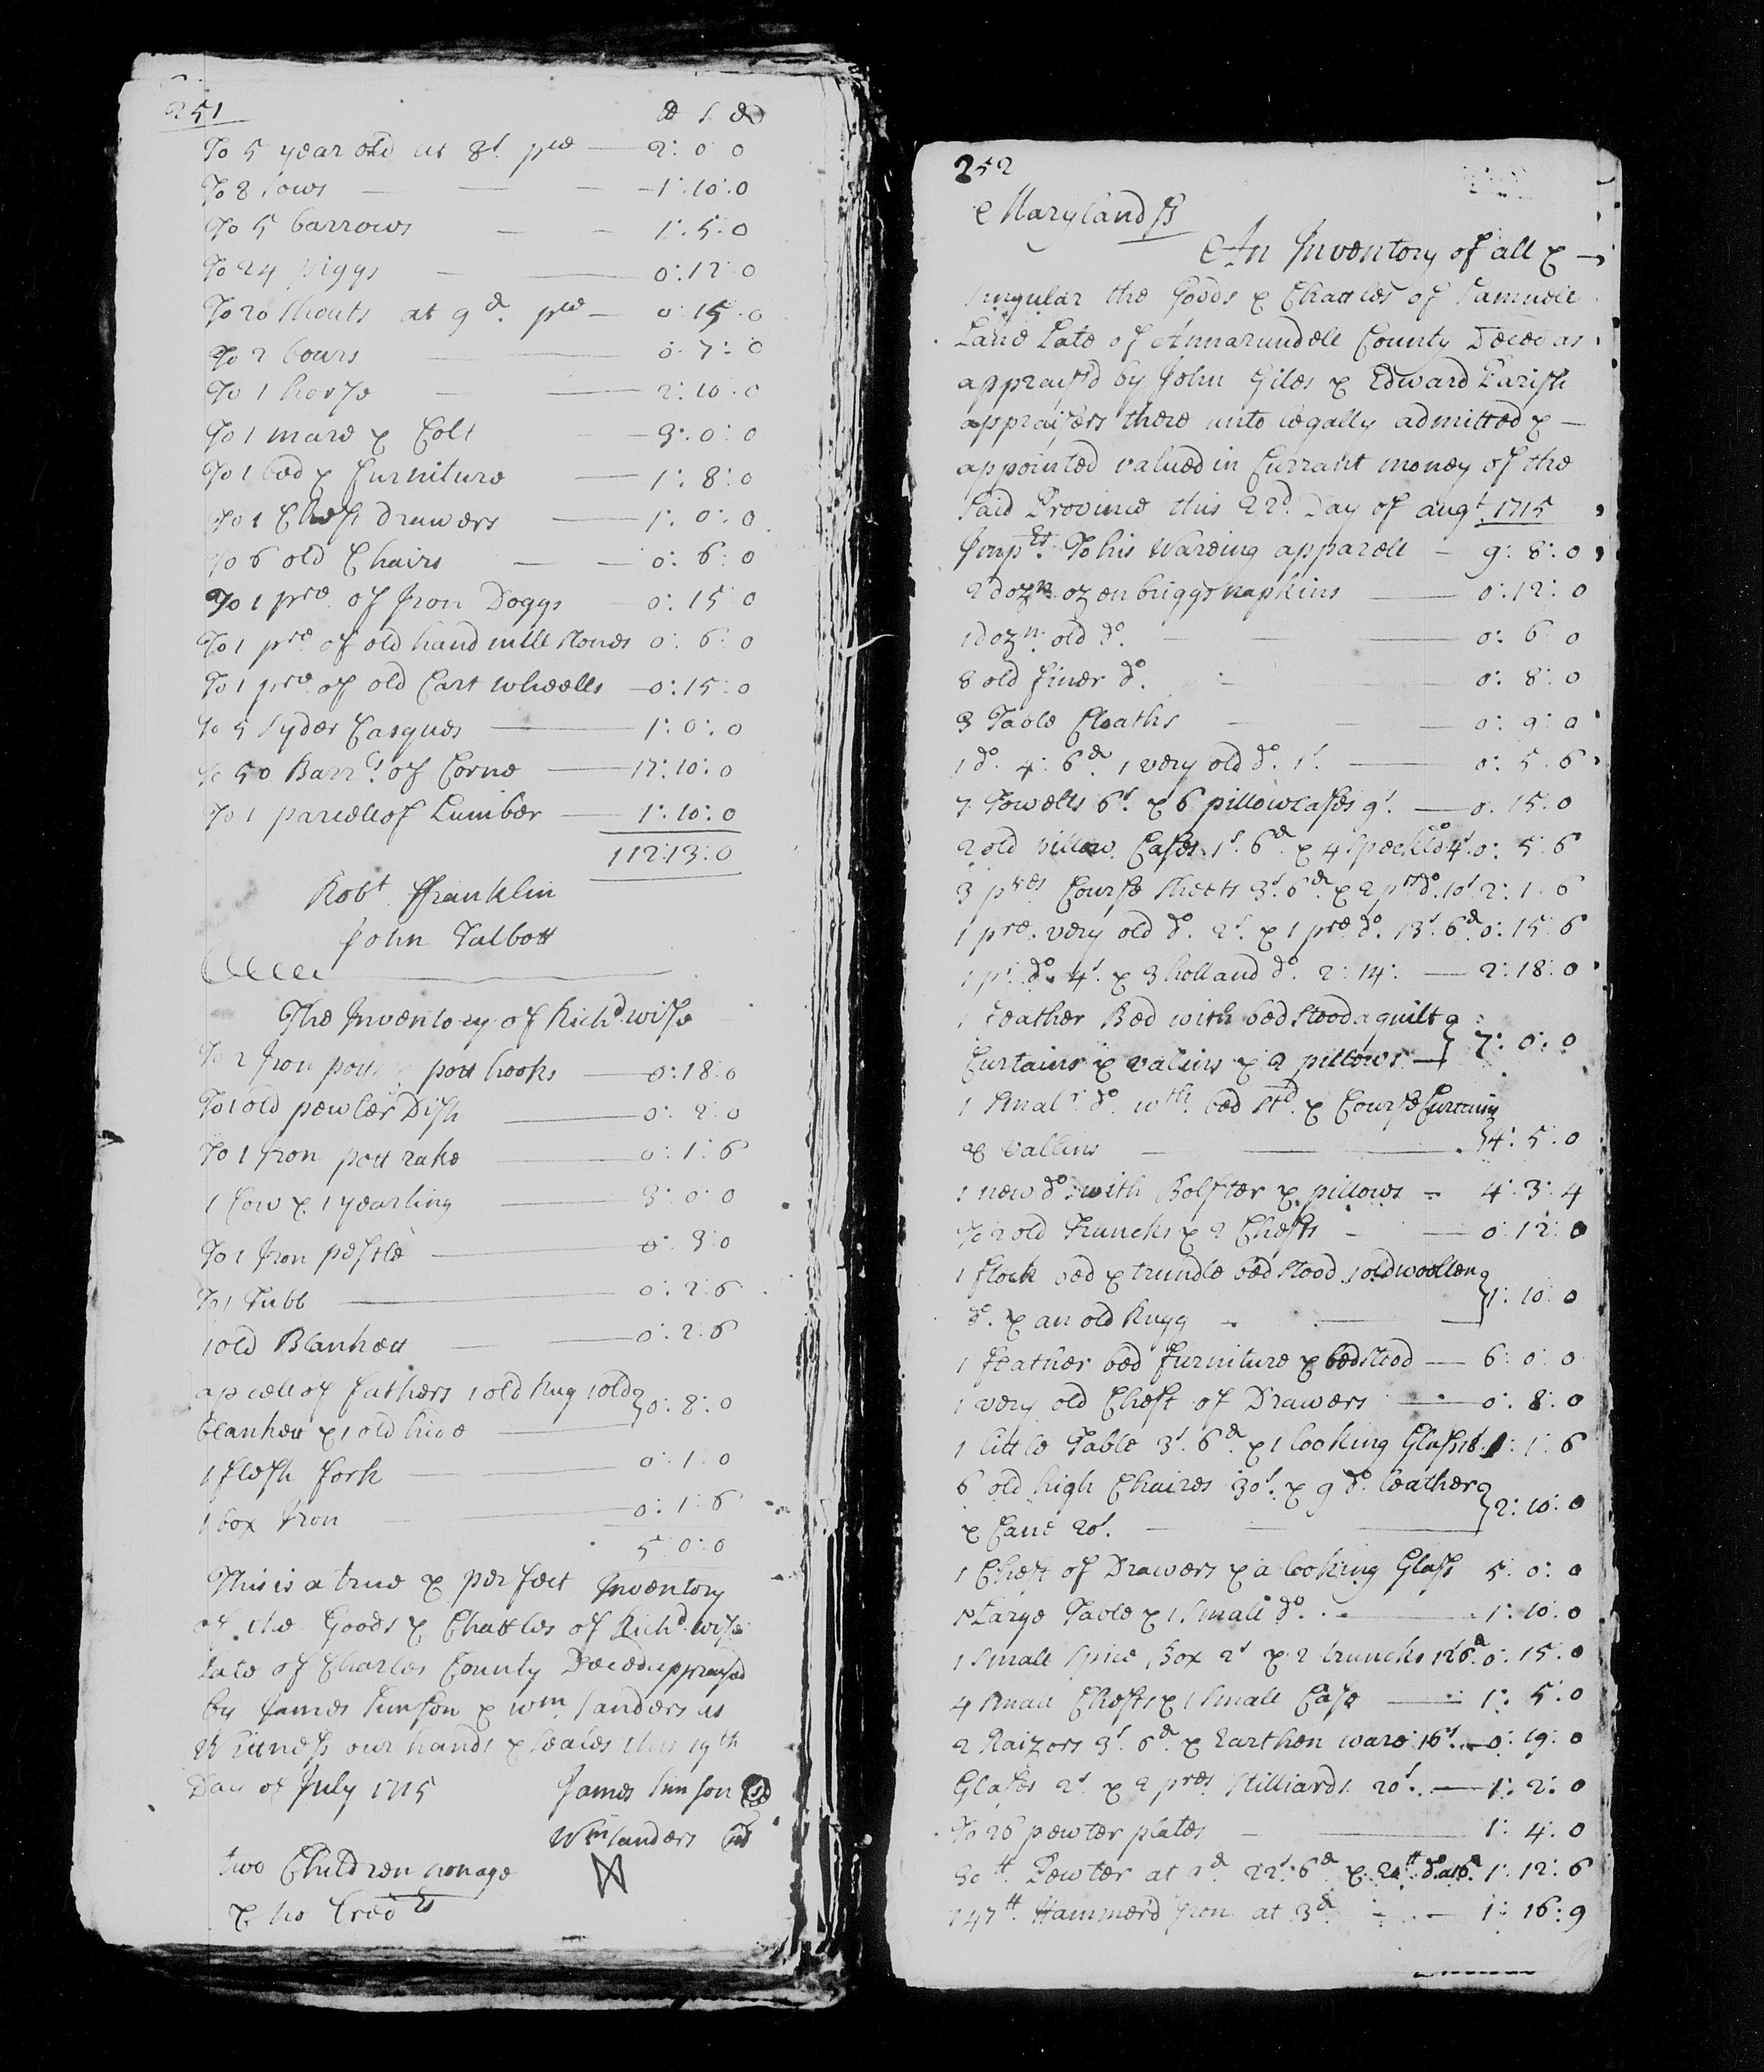 251
£ s d
To 5 year old at 8s. pce 2: 0 0
To 8 sows 1: 10: 0
To 5 barrows 1: 5: 0
To 24 piggs 0: 12: 0
To 20 shouts at 9d. pce 0: 15: 0
To 2 bours 0: 7: 0
To 1 horse 2: 10: 0
To 1 mare & Colt 3: 0: 0
To 1 bed & furniture 1: 8: 0
To 1 Chest Drawers 1: 0: 0
To 6 old Chairs 0: 6: 0
To 1 pre. of Iron Doggs 0: 15: 0
To 1 pre. of old hand mill stones 0: 6: 0
To 1 pre. of old Cart wheells 0: 15: 0
To 5 Syder Casques 1: 0: 0
To 50 Barrs. of Corne 17: 10: 0
To 1 parcell of Lumber 1: 10: 0
112: 13: 0
Robt. Franklin
John Talbott
The Inventory of Richd. wise
To 2 Iron potts & pott hooks 0: 18: 0
To 1 old pewter Dish 0: 2: 0
To 1 Iron pott rake 0: 1: 6
1 Cow & 1 yearling 3: 0: 0
To 1 Iron pestle 0: 3: 0
To 1 Tubb 0: 2: 6
1 old Blankett 0: 2: 6
a pcell of fathers 1 old Rug 1 old
blankett & 1 old hide 0: 8: 0
1 flesh fork 0: 1: 0
1 box Iron 0: 1: 6
5 0: 0
This is a true & perfect Inventory
of the Goods & Chattles of Richd. wise
late of Charles County Deced appraised
by James Simson & Wm. Sanders as
Wittness our hands & seales this 19th
Day of July 1715 James Simson
Wm Sanders
two Children nonage
& no Credrs
252
Maryland ss
An Inventory of all &
singular the Goods & Chattles of Samuell
Lane Late of Annarundell County Deced as
appraisd by John Giles & Edward Parish
appraisers there unto legally admitted &
appointed valued in Currant money of the
said Province this 22d. Day of augt. 1715
Imprs. To his Wareing apparell 9: 8: 0
2 dozn. ozenbriggs napkins 0: 12: 0
1 dozn. old do. 0: 6: 0
8 old finer do. 0: 8: 0
3 Table Cloaths 0: 9: 0
1 do. 4: 6d. 1 very old do. 1s. 0: 5: 6
7 Towells 6s. & 6 pillowcases 9s. 0: 15: 0
2 old pillow Cases 1s. 6d. & 4 Speckld do 4s. 0: 5: 6
3 pres Course Sheets 3s. 6d & 2 prs do. 10s 2: 1: 6
1 pre. very old do. 2s. & 1 pre do. 13s. 6d. 0: 15: 6
1 pr. do. 4s. & 3 holland do. 2: 14: 2: 18: 0
1 feather Bed with bedsteed a quilt
Curtains & valins & 2 pillows 7: 0: 0
1 Smalr. do. wth. bed std. & Course Curtains
& vallins 4: 5: 0
1 new do: with Bolster & pillows 4: 3: 4
To 2 old Truncks & 2 Chests 0: 12: 0
1 flock bed & trundle bedsteed 1 old woollen
do. & an old Rugg 1: 10: 0
1 feather bed furniture & bedsteed 6: 0: 0
1 very old Chest of Drawers 0: 8: 0
1 little Table 3s. 6d. & 1 looking Glass 18s. 1: 1: 6
6 old high Chaires 30s. & 9 do. leather
& Cane 20s. 2: 10: 0
1 Chest of Drawers & a looking Glass 5: 0: 0
1 Large Table & 1 Small do. 1: 10: 0
1 Small Spice Box 2s & 2 truncks 12s 6d. 0: 15: 0
4 Small Chests & 1 Small Case 1: 5: 0
2 Raizors 3s. 6d. & Earthen ware 16s. 0: 19: 0
Glases 2s & 2 pres Stilliards 20s. 1: 2: 0
To 26 pewter plates 1: 4: 0
30 tt. Pewter at 9d. 22s: 6d & 20tt. do. at 6d 1: 12: 6
147 tt. Hammerd Iron at 3d. 1: 16: 9